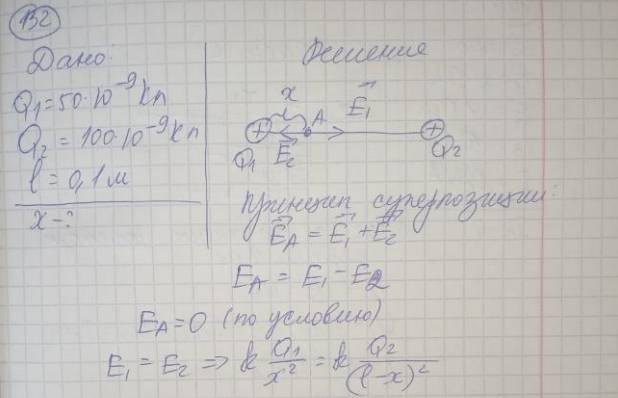 132
Дано:
Q₁=50·10⁻⁹ Кл
Q₂ = 100·10⁻⁹ Кл
l = 0,1 м
x - ?
Решение
x
A
E₁
E₂
Q₁
Q₂
Принцип суперпозиции:
E⃗_A = E⃗₁ + E⃗₂
E_A = E₁ - E₂
E_A = 0 (по условию)
E₁ = E₂ => k Q₁/x² = k Q₂/(l-x)²